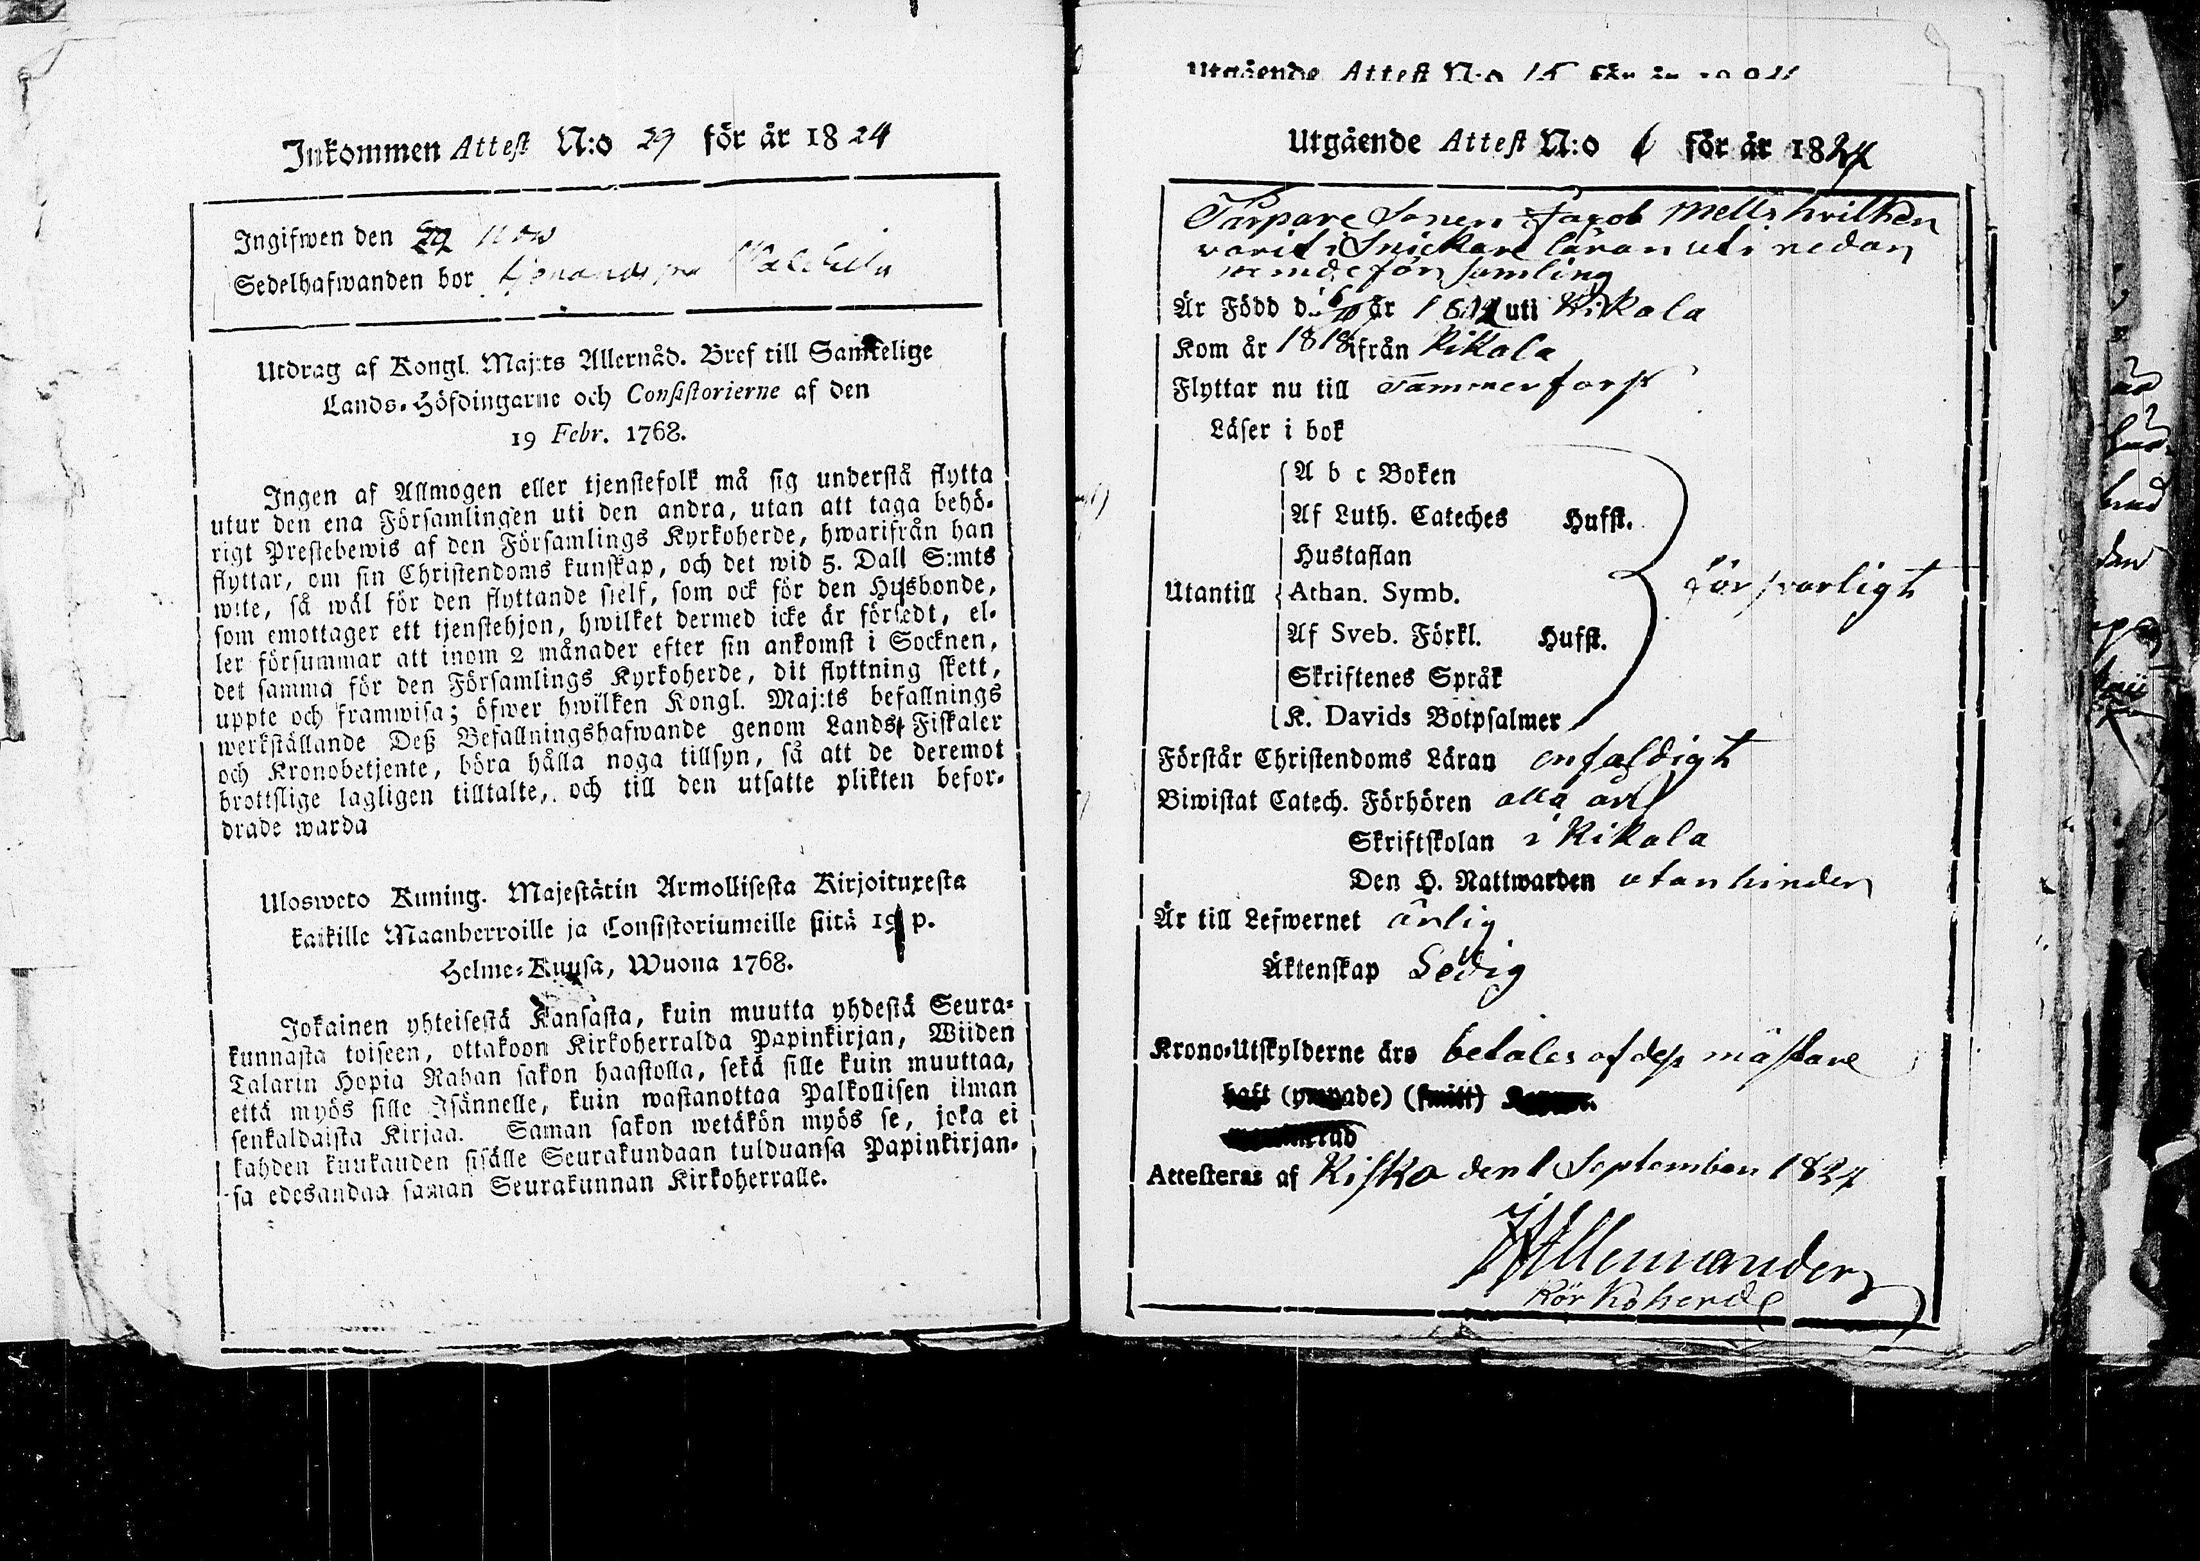 Inkommen Attest N:o 29 för år 1824
Ingifwen den 29 Nov
Sedelhafwanden bor
Utdrag af Kongl. Maj:ts Allernåd. Bref till Samtelige
Lands-Höfdingarne och Consistorierne af den
19 Febr. 1768.
Ingen af Allmogen eller tjenstefolk må sig understå flytta
utur den ena Församlingen uti den andra, utan att taga behö-
rigt Prestebewis af den Församlings Kyrkoherde, hwarifrån han
flyttar, om sin Christendoms kunskap, och det wid 5. Dall S:mts
wite, så wäl för den flyttande sielf, som ock för den Husbonde,
som emottager ett tjenstehjon, hwilket dermed icke är försedt, el-
ler försummar att inom 2 månader efter sin ankomst i Socknen,
det samma för den Församlings Kyrkoherde, dit flyttning skett,
uppte och framwisa; öfwer hwilken Kongl. Maj:ts befallnings
werkställande Deß Befallningshafwande genom Lands-Fiskaler
och Kronobetjente, böra hålla noga tillsyn, så att de deremot
brottslige lagligen tilltalte, och till den utsatte plikten befor-
drade warda
Ulosweto Kuning. Majestätin Armollisesta Kirjoituxesta
kaikille Maanherroille ja Consistoriumeille siitä 19 p.
Helme-Kuusa, Wuona 1768.
Jokainen yhteisestä Kansasta, kuin muutta yhdestä Seura-
kunnasta toiseen, ottakoon Kirkoherralda Papinkirjan, Wiiden
Talarin Hopia Rahan sakon haastolla, sekä sille kuin muuttaa,
että myös sille Isännelle, kuin wastanottaa Palkollisen ilman
senkaldaista Kirjaa. Saman sakon wetäkön myös se, joka ei
kahden kuukauden sisälle Seurakundaan tulduansa Papinkirjan-
sa edesandaa saman Seurakunnan Kirkoherralle.
Utgående Attest N:o 15 för år
Utgående Attest N:o 6 för år 1824
Torpare Sonen Jacob Mells hvilken
varit i Snickare läran uti nedan
nämde församling
Är Född d. år uti Kikala
Kom år 1818 ifrån Kikala
Flyttar nu till Tammerfors
Läser i bok
A b c Boken
Af Luth. Cateches Husst.
Hustaflan
Utantill Athan. Symb. försvarligt
Af Sveb. Förkl. Husst.
Skriftenes Språk
K. Davids Botpsalmer
Förstår Christendoms Läran enfaldigt
Biwistat Catech. Förhören alla år
Skriftskolan i Kikala
Den H. Nattwarden utan hinder
Är till Lefwernet ärlig
Äktenskap Ledig
Krono-Utskylderne äro betales af dess mästare
haft
Attesteras af Kisko den 1 September 1824
Kyrkoherde